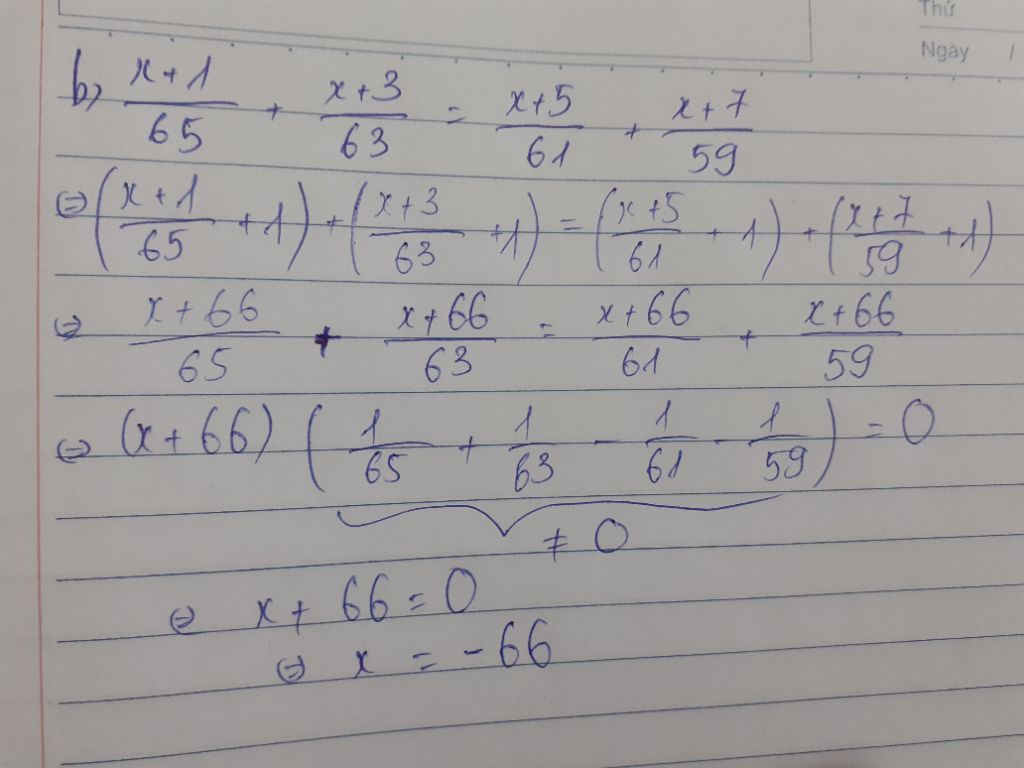 Thứ
Ngày /
b) \frac{x+1}{65} + \frac{x+3}{63} = \frac{x+5}{61} + \frac{x+7}{59}
⇔ (\frac{x+1}{65} + 1) + (\frac{x+3}{63} + 1) = (\frac{x+5}{61} + 1) + (\frac{x+7}{59} + 1)
⇔ \frac{x+66}{65} + \frac{x+66}{63} = \frac{x+66}{61} + \frac{x+66}{59}
⇔ (x+66) (\frac{1}{65} + \frac{1}{63} - \frac{1}{61} - \frac{1}{59}) = 0
≠ 0
⇔ x + 66 = 0
⇔ x = -66